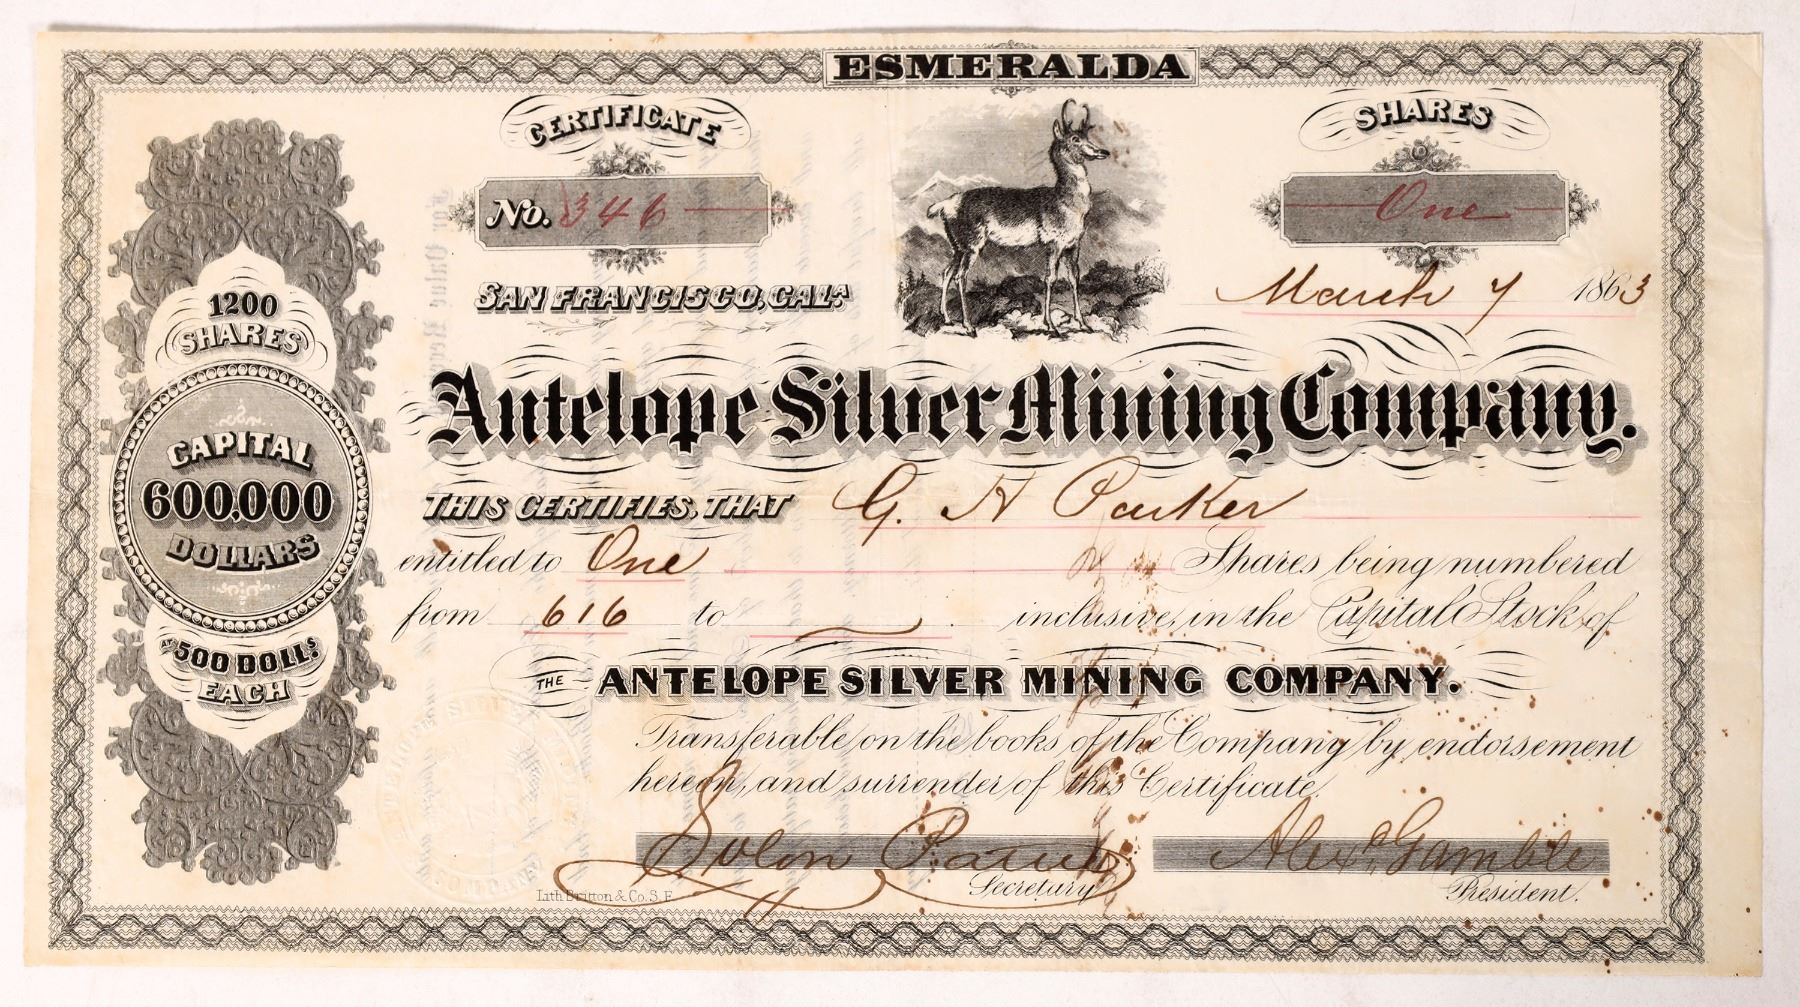 ESMERALDA
CERTIFICATE
No. 346
SHARES
One
SAN FRANCISCO, CALA
March 7 1863
1200
SHARES
CAPITAL
600,000
DOLLARS
AT 500 DOLLS.
EACH
Antelope Silver Mining Company.
THIS CERTIFIES, THAT G. H Parker
entitled to One Shares being numbered
from 616 to inclusive, in the Capital Stock of
THE ANTELOPE SILVER MINING COMPANY.
Transferable on the books of the Company by endorsement
hereon, and surrender of this Certificate.
Solon Alexr. Gamble
Secretary President.
Lith Britton & Co. S. F.